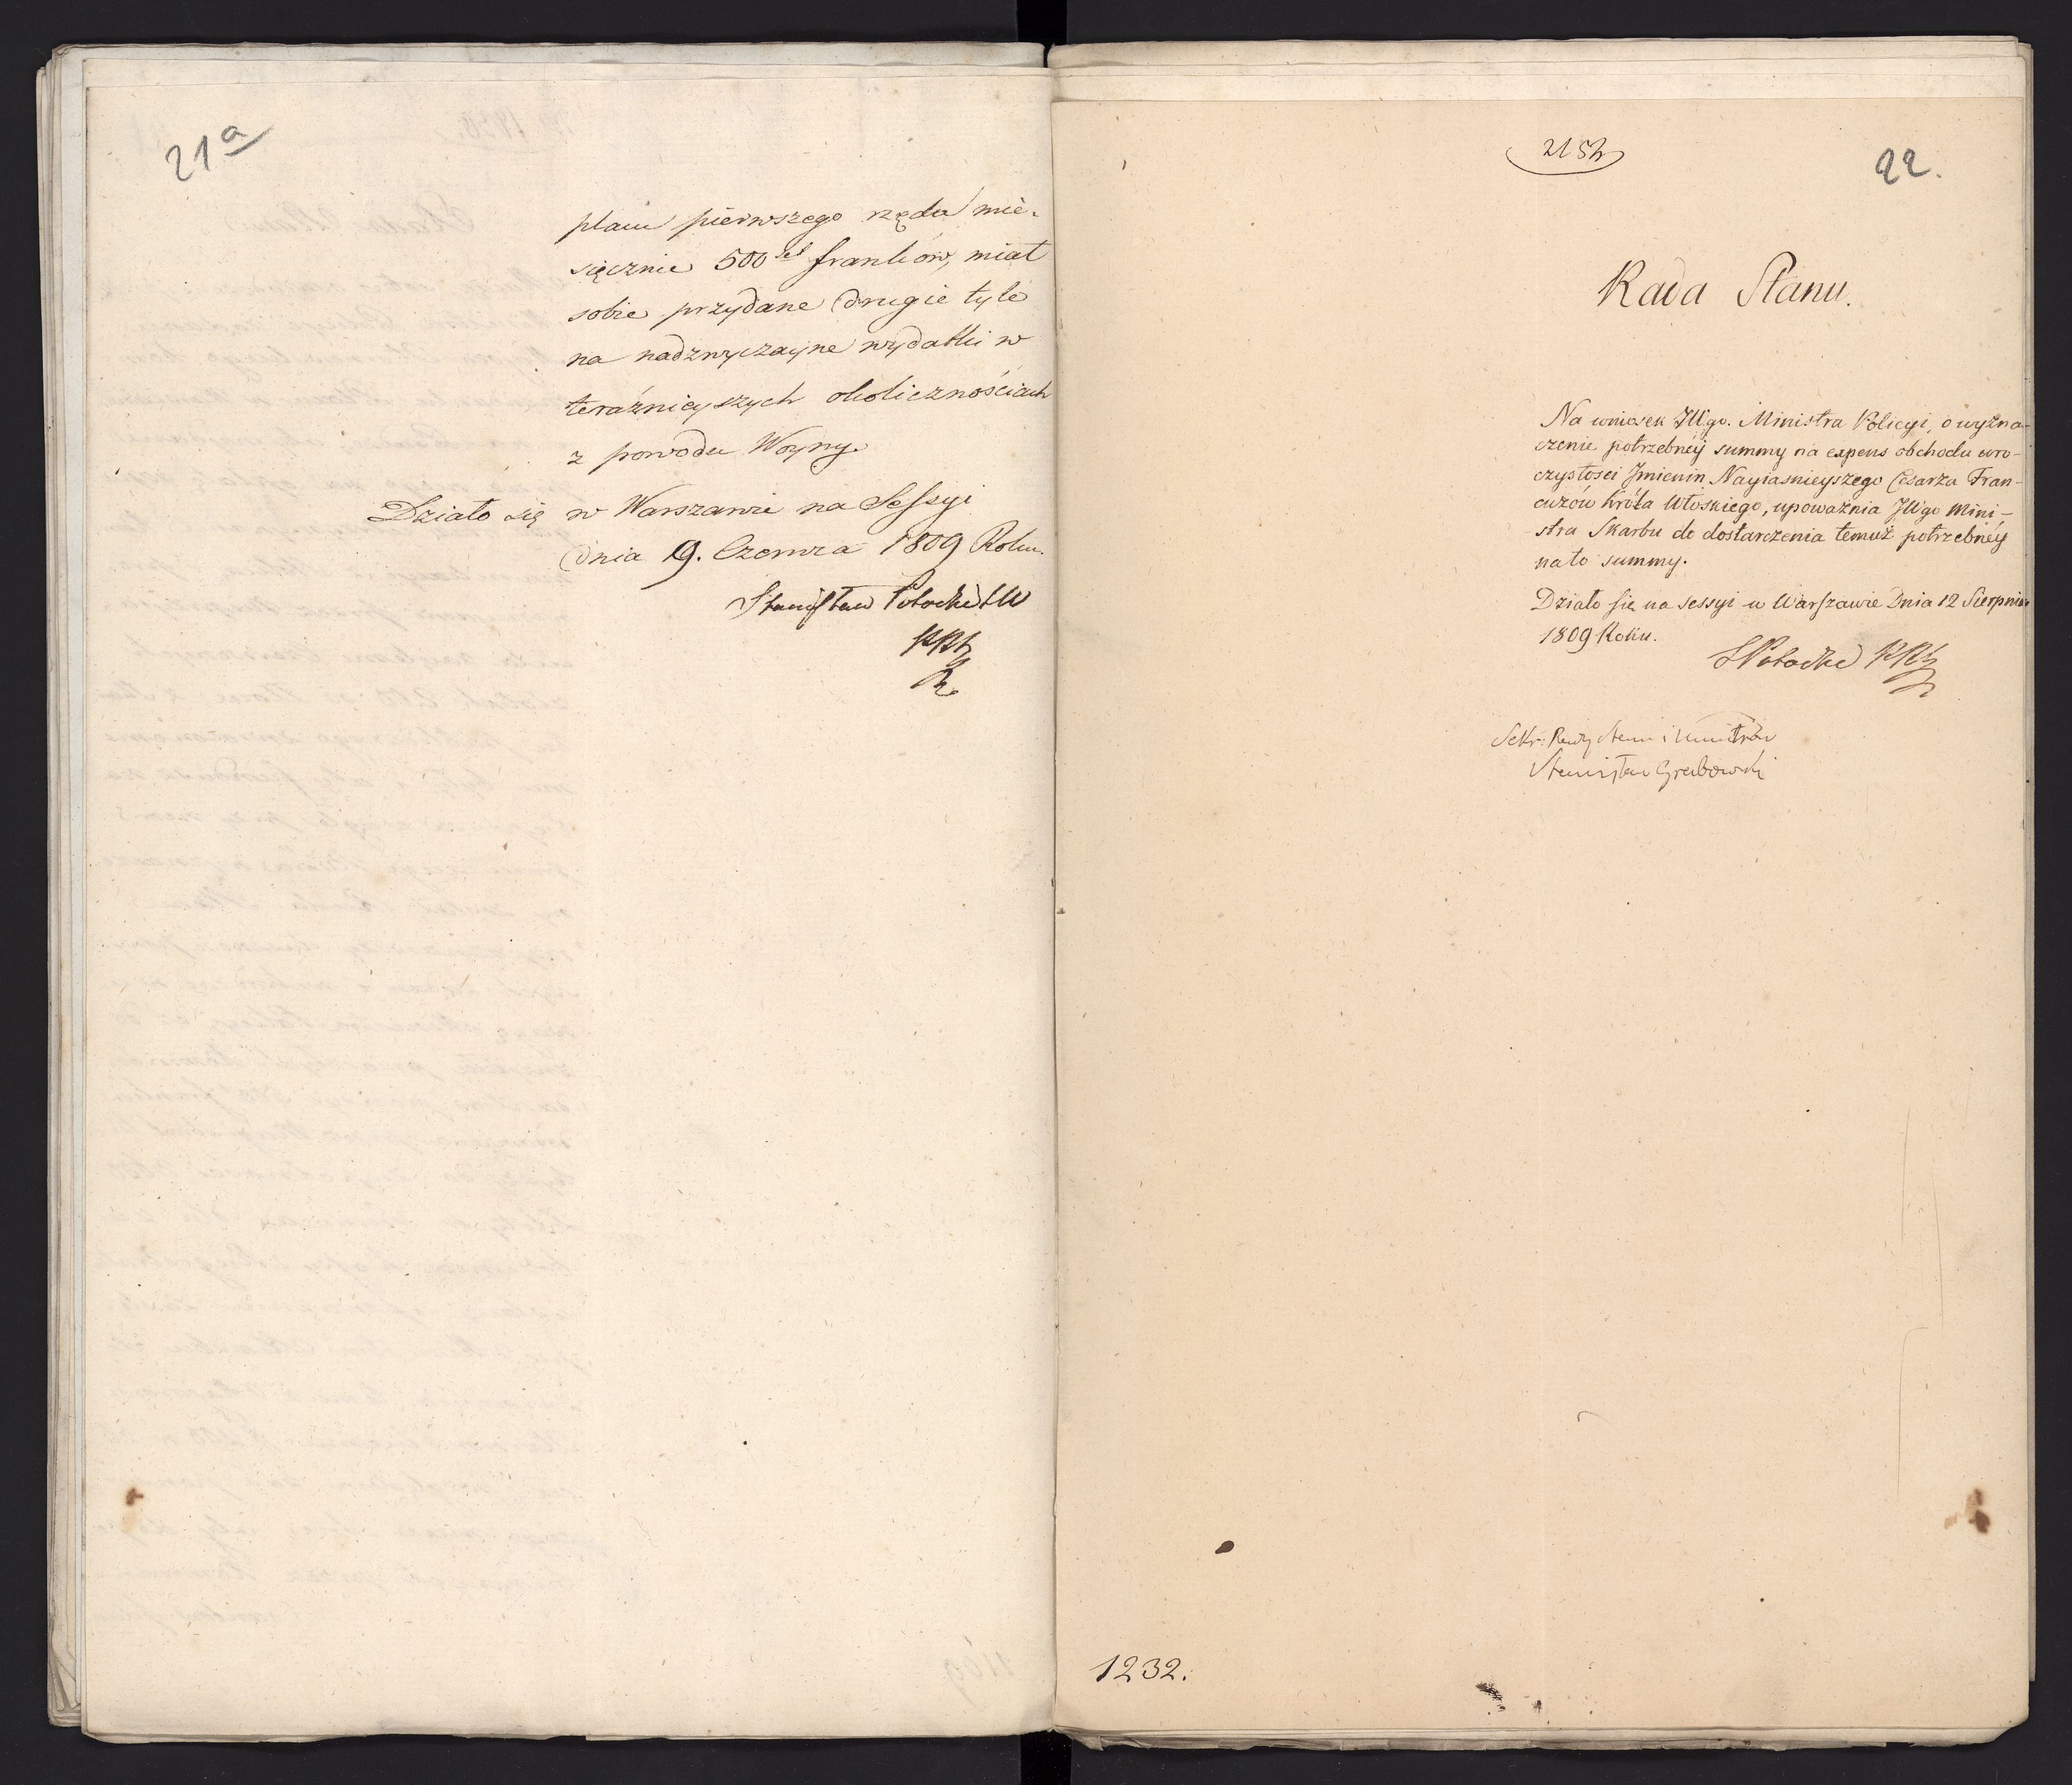 21a
placu pierwszego rzędu mie-
sięcznie 500set franków, miał
sobie przydane drugie tyle
na nadzwyczayne wydatki w
teraźnieyszych okolicznościach
z powodu Woyny.
Działo się w Warszawie na Sessyi
dnia 19. Czerwca 1809 Roku.
Stanisław Potocki SW
PRS
2152
22.
Rada Stanu.
Na wniosek JWgo. Ministra Policyi, o wyzna-
czenie potrzebnéy summy na expens obchodu uro-
czystosci Jmienin Nayiasnieyszego Cesarza Fran-
cuzow Króla Włoskiego, upoważnia JWgo Mini-
stra Skarbu do dostarczenia temuż potrzebnéy
na to summy.
Działo się na sessyi w Warszawie Dnia 12 Sierpnia
1809 Roku.
S Potocki PRS
Sekr: Rady Stanu i Ministrów
Stanisław Grabowski
1232.